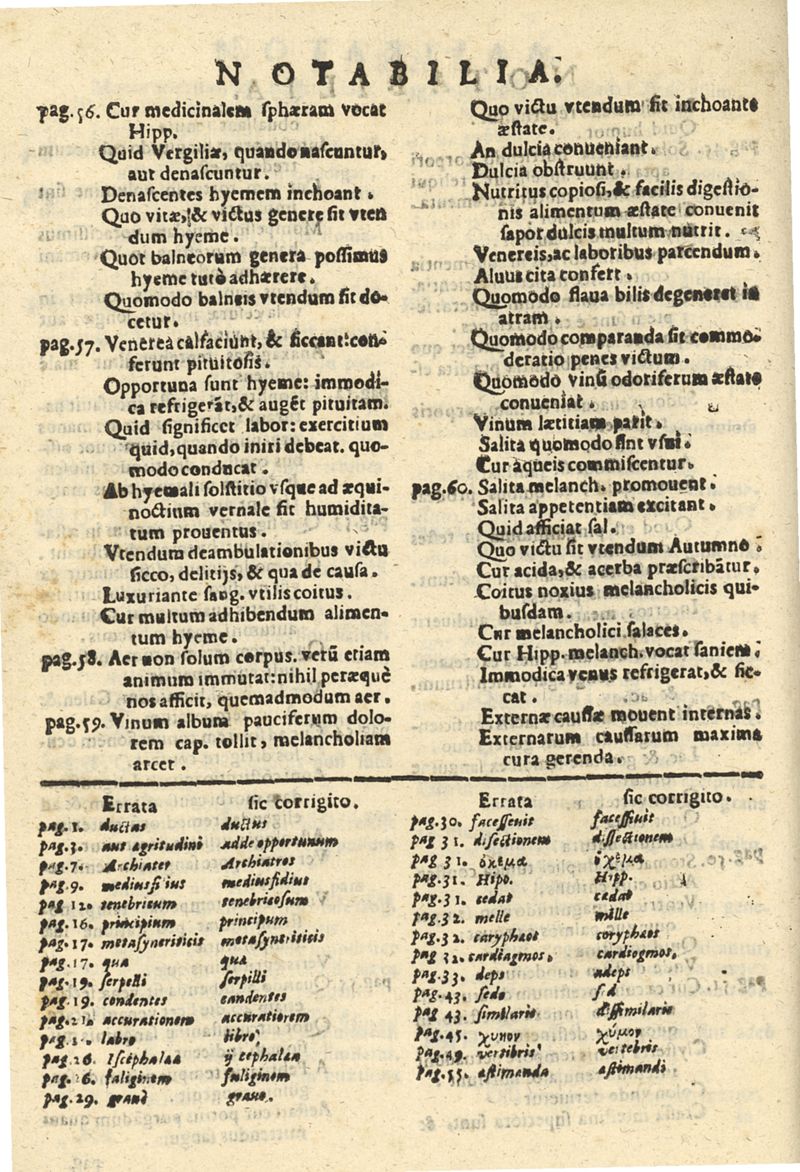 NOTABILIA.
pag.56. Cur medicinalem sphæram vocat
Hipp.
Quid Vergiliæ, quando nascuntur,
aut denascuntur.
Denascentes hyemem inchoant.
Quo vitæ, & victus genere sit vten
dum hyeme.
Quot balneorum genera possimus
hyeme tutò adhærere.
Quomodo balneis vtendum sit do-
cetur.
pag.57. Venerea calfaciunt, & siccant: con-
ferunt pituitosis.
Opportuna sunt hyeme: immodi-
ca refrigerãt, & augẽt pituitam.
Quid significet labor: exercitium
quid, quando iniri debeat. quo-
modo conducat.
Ab hyemali solstitio vsque ad æqui-
noctium vernale sit humidita-
tum prouentus.
Vtendum deambulationibus victu
sicco, delitijs, & qua de causa.
Luxuriante sang. vtilis coitus.
Cur multum adhibendum alimen-
tum hyeme.
pag.58. Aer non solum corpus. verũ etiam
animum immutat: nihil peræquè
nos afficit, quemadmodum aer.
pag.59. Vinum album pauciferum dolo-
rem cap. tollit, melancholiam
arcet.
Quo victu vtendum sit inchoante
æstate.
An dulcia conueniant.
Dulcia obstruunt.
Nutritus copiosi, & facilis digestio-
nis alimentum æstate conuenit
sapor dulcis multum nutrit.
Venereis, ac laboribus parcendum.
Aluus cita confert.
Quomodo flaua bilis degeneret in
atram.
Quomodo comparanda sit commo-
deratio penes victum.
Quomodo vinũ odoriferum æstate
conueniat.
Vinum lætitiam parit.
Salita quomodo sint vsui.
Cur àqueis commiscentur.
pag.60. Salita melanch. promouent.
Salita appetentiam excitant.
Quid afficiat sal.
Quo victu sit vtendum Autumno.
Cur acida, & acerba præscribãtur.
Coitus noxius melancholicis qui-
busdam.
Cur melancholici salaces.
Cur Hipp. melanch. vocat saniem.
Immodica venus refrigerat, & sic-
cat.
Externæ caussæ mouent internas.
Externarum caussarum maxima
cura gerenda.
Errata sic corrigito.
pag.1. ductas ductus
pag.3. aut agritudinè adde opportunum
pag.7. Archiater Archiatros
pag.9. mediusfi ius mediusfidius
pag 12. tenebricum tenebricosum
pag.16. principium principum
pag.17. metasyneriticis metasyncriticis
pag.17. qua qua
pag.19. serpelli serpilli
pag.19. condentes candentes
pag.21. accurationem accuratiorem
labro libro
pag.26. Iscephalaa ij cephalaa
faliginem fuliginem
pag.29. granè graue.
Errata sic corrigito.
pag.30. facesseuit facessiuit
pag 31. disectionem dissectionem
pag 31. ὀχεμα ὀχῆμα
pag.31. Hipo. Hipp.
pag.31. cedat cadat
pag.32. melle mille
pag.32. caryphaos coryphaos
pag 32. cardiagmos, cardiogmos,
pag.33. deps adeps
pag.43. sedo
pag 43. similario dissimilario
pag.45. χυνον χύμον
pag.49. vertibris vertebris
pag.55. astimanda astimandi